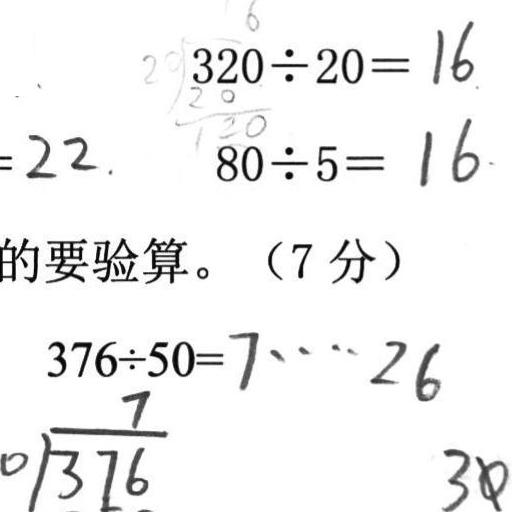 6
20 320÷20=16
20
120
=22. 80÷5=16.
的要验算。（7 分）
376÷50=7····26
7
0 376